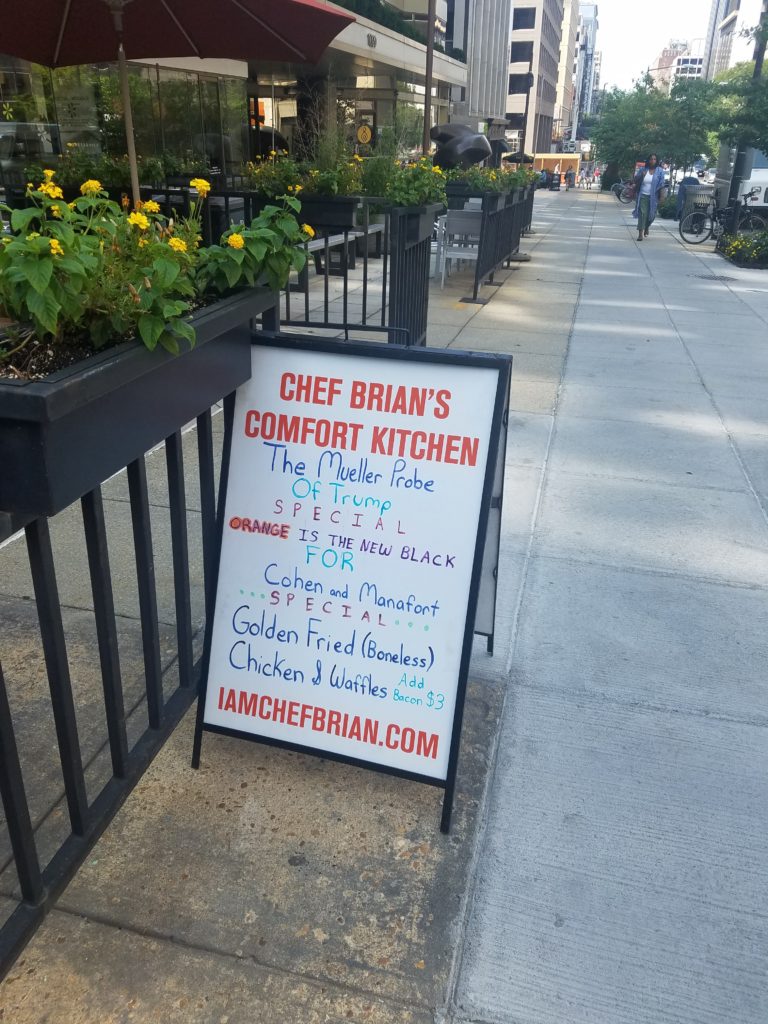 CHEF BRIAN'S
COMFORT KITCHEN
The Mueller Probe
Of Trump
SPECIAL
ORANGE IS THE NEW BLACK
FOR
Cohen and Manafort
...SPECIAL...
Golden Fried (Boneless)
Chicken & Waffles Add
Bacon $3
IAMCHEFBRIAN.COM